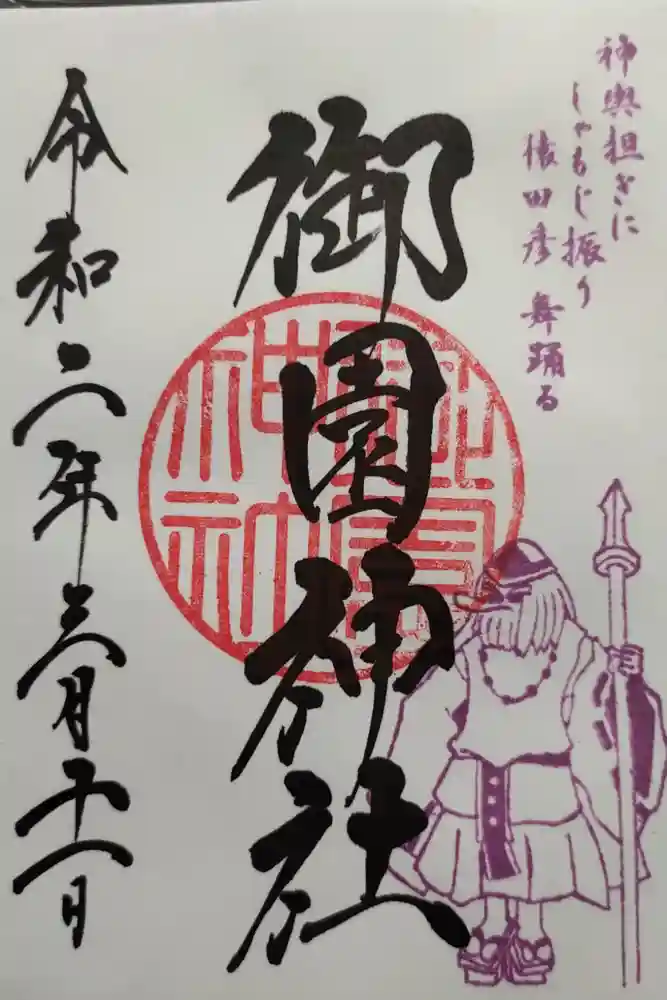 神輿担ぎに
しゃもじ振り
猿田彦舞踊る
御園神社
令和二年三月十一日